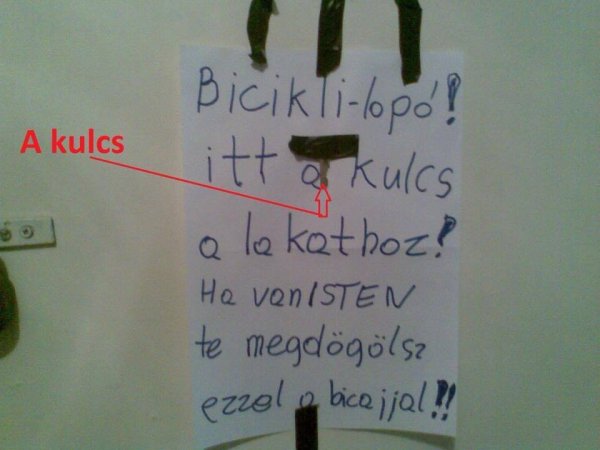 Bicikli-lopó!
A kulcs
itt a kulcs
a lakathoz!
Ha van ISTEN
te megdögölsz
ezzel a bicajjal!!